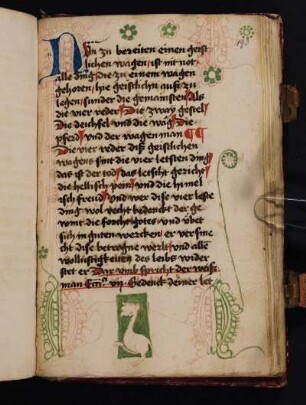 Nun zu bereiten einen geist
lichen wagen / ist nit not
alle ding die zu einem wagen
gehoren / hie geistlichn ausz zu
legen / sunder die gemainsten / Als
die vier reder / Die zway gestel /
Die deichsel und die wag / Die
pferd / und der wagen man ¶¶
Die vier reder disz geistlichen
wagens sint die vier letsten ding /
das ist der tod / das letscht gericht /
die hellisch pein / und die himel
isch freud / und wer dise vier leste
ding wol recht bedenckt der ge
wint die forcht gotes / und ubet
sich in guten wercken / er versme
cht dise betrogne werlt / und alle
wollustigkeiten des leibs wider
stet er / Dar umb spricht der weisz
man Gedenck deiner let